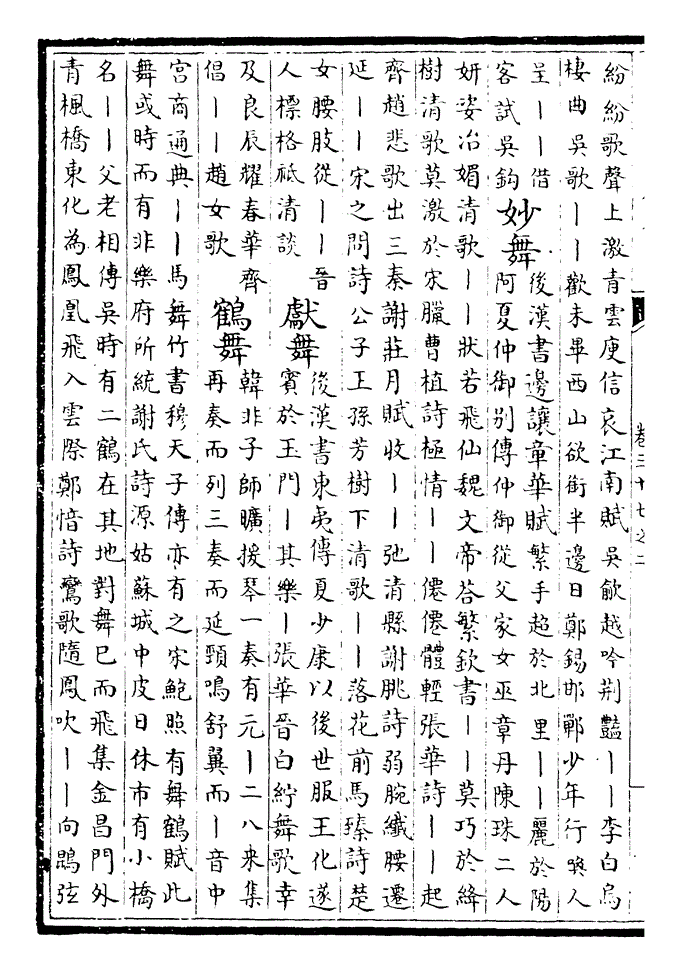 紛紛歌聲上激青雲庾信哀江南賦吳歈越吟荊豔丨丨李白烏
棲曲吳歌丨丨歡未畢西山欲銜半邊日鄭錫邯鄲少年行喚人
呈丨丨借
客試吳鈎
妙舞
後漢書邊讓章華賦繁手超於北里丨丨麗於陽
阿夏仲御别傳仲御從父家女巫章丹陳珠二人
妍姿冶媚清歌丨丨狀若飛仙魏文帝荅繁欽書丨丨莫巧於絳
樹清歌莫激於宋臈曹植詩極情丨丨僊僊體輕張華詩丨丨起
齊趙悲歌出三秦謝莊月賦收丨丨弛清縣謝朓詩弱腕纖腰遷
延丨丨宋之問詩公子王孫芳樹下清歌丨丨落花前馬臻詩楚
女腰肢從丨丨晉
人標格祗清談
獻舞
後漢書東夷傳夏少康以後世服王化遂
賓於王門丨其樂丨張華晉白紵舞歌幸
及良辰耀春華齊
倡丨丨趙女歌
鶴舞
韓非子師曠援琴一奏有元丨二八來集
再奏而列三奏而延頸鳴舒翼而丨音中
宮商通典丨丨馬舞竹書穆天子傳亦有之宋鮑照有舞鶴賦此
舞或時而有非樂府所統謝氏詩源姑蘇城中皮日休市有小橋
名丨丨父老相傳吳時有二鶴在其地對舞已而飛集金昌門外
青楓橋東化為鳳凰飛入雲際鄭愔詩鸞歌隨鳳吹丨丨向鵾弦
卷三十七之二